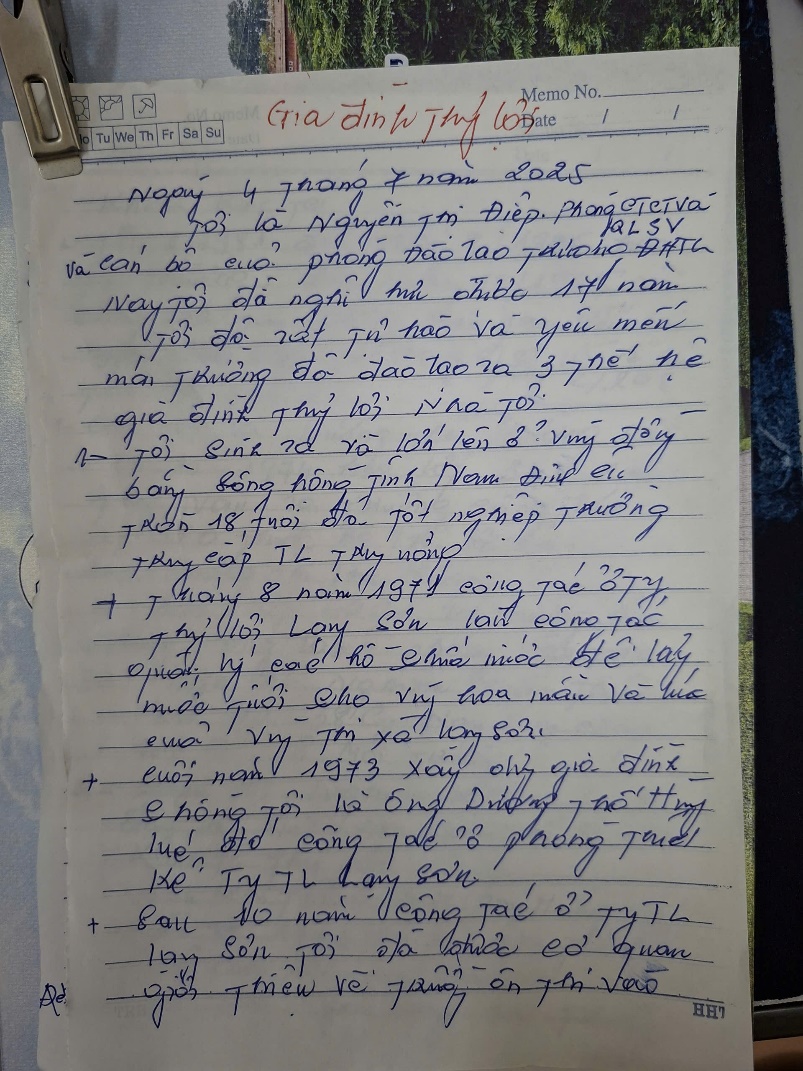 Memo No.
Gia đình Thuỷ lợi
Date / /
Mo Tu We Th Fr Sa Su
Ngày 4 Tháng 7 năm 2025
Tôi là Nguyễn Thị Điệp. Phòng CTCT và
QLSV
và cán bộ của phòng Đào tạo Trường ĐHTL
Nay tôi đã nghỉ hưu được 17 năm
Tôi đã rất tự hào và yêu mến
mái trường đã đào tạo ra 3 thế hệ
gia đình thuỷ lợi Nhà tôi.
1- Tôi sinh ra và lớn lên ở vùng đồng
bằng sông hồng Tỉnh Nam Định
tròn 18 tuổi đã tốt nghiệp trường
trung cấp TL Trung ương
+ Tháng 8 năm 1971 công tác ở Ty
Thuỷ lợi Lạng Sơn làm công tác
quản lý các hồ chứa nước để lấy
nước tưới cho vùng hoa màu và lúa
của vùng thị xã lạng sơn.
+ Cuối năm 1973 xây dựng gia đình
chồng tôi là Ông Dương Thố Hùng
lúc đó công tác ở phòng Thiết
Kế Ty TL Lạng Sơn
+ Sau 10 năm công tác ở Ty TL
lạng sơn tôi đã được cơ quan
giới thiệu về trường ôn thi vào
HH7